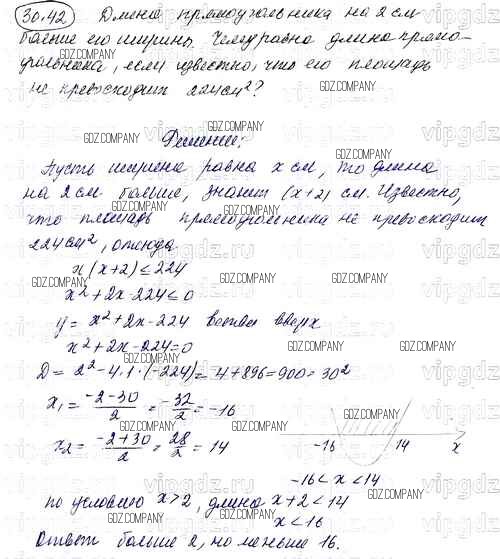 30.42 Длина прямоугольника на 2 см
больше его ширины. Чему равна длина прямо-
угольника, если известно, что его площадь
не превосходит 224 см²?
Решение:
Пусть ширина равна x см, то длина
на 2 см больше, значит (x+2) см. Известно,
что площадь прямоугольника не превосходит
224 см², откуда
x(x+2) ≤ 224
x² + 2x - 224 ≤ 0
y = x² + 2x - 224 ветви вверх
x² + 2x - 224 = 0
D = 2² - 4·1·(-224) = 4 + 896 = 900 = 30²
x₁ = (-2-30)/2 = -32/2 = -16
x₂ = (-2+30)/2 = 28/2 = 14
-16 14 x
-16 < x < 14
по условию x > 2, длина x+2 < 14
x < 16
Ответ больше 2, но меньше 16.